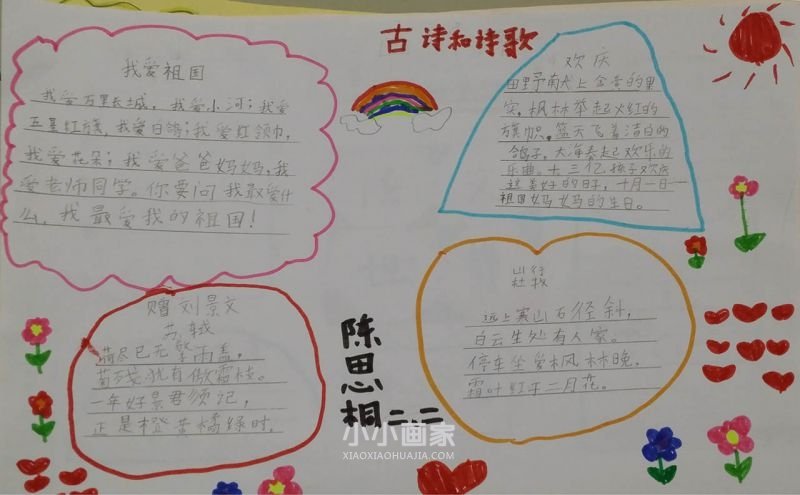 古诗和诗歌
我爱祖国
我爱万里长城，我爱小河；我爱
五星红旗，我爱白鸽；我爱红领巾，
我爱花朵；我爱爸爸妈妈，我
爱老师同学。你要问我最爱什
么，我最爱我的祖国！
欢庆
田野献上金黄的果
实，枫林举起火红的
旗帜，蓝天飞着洁白的
鸽子，大海奏起欢乐的
乐曲。十三亿孩子欢庆
这美好的日子，十月一日——
祖国妈妈的生日。
赠刘景文
苏轼
荷尽已无擎雨盖，
菊残犹有傲霜枝。
一年好景君须记，
正是橙黄橘绿时。
山行
杜牧
远上寒山石径斜，
白云生处有人家。
停车坐爱枫林晚，
霜叶红于二月花。
陈思桐二.二
小小画家
XIAOXIAOHUAJIA.COM